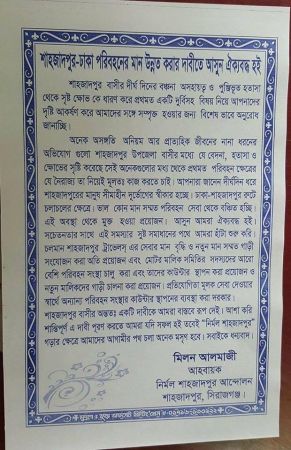 শাহজাদপুর-ঢাকা পরিবহনের মান উন্নত করার দাবীতে আসুন ঐক্যবদ্ধ হই
শাহজাদপুর বাসীর দীর্ঘ দিনের বঞ্চনা অসহায়ত্ব ও পুঞ্জিভূত হতাসা
থেকে সৃষ্ট ক্ষোভ কে ধারণ করে প্রথমত একটি দুর্বিসহ বিষয় নিয়ে আপনাদের
দৃষ্টি আকর্ষণ করে আমাদের সঙ্গে সম্পৃক্ত হওয়ার জন্য বিশেষ ভাবে অনুরোধ
জানাচ্ছি।
অনেক অসঙ্গতি অনিয়ম আর প্রাত্যহিক জীবনের নানা ধরনের
অভিযোগ গুলো শাহজাদপুর উপজেলা বাসীর মধ্যে যে বেদনা, হতাসা ও
ক্ষোভের সৃষ্টি করেছে সেই অনেকগুলোর মধ্য থেকে প্রথমত পরিবহন ক্ষেত্রের
যে নৈরাজ্য তা নিয়েই মূলতঃ কাজ করতে চাই। আপনারা জানেন দীর্ঘদিন ধরে
শাহজাদপুরের মানুষ সীমাহীন দুর্ভোগের স্বীকার হচ্ছে। ঢাকা-শাহজাদপুর রুটে
চলাচলের ক্ষেত্রে। ভাল কোন মান সম্মত পরিবহন সেবা থেকে বঞ্চিত হচ্ছি।
এই অবস্থা থেকে মুক্ত হওয়া প্রয়োজন। আসুন আমরা ঐক্যবদ্ধ হই।
সচেতনতার সাথে এই সমস্যার সুষ্ঠ সমাধানের পথে আমরা হাঁটা শুরু করি।
চলমান শাহজাদপুর ট্রাভেলস্ এর সেবার মান বৃদ্ধি ও নতুন মান সম্মত গাড়ী
সংযোজন করা অতি প্রয়োজন এবং মোটর মালিক সমিতির সদস্যদের আরো
বেশি পরিবহন সংস্থা চালু করা এবং তাদের কাউন্টার স্থাপন করা প্রয়োজন ও
নতুন মালিকদের গাড়ী চালনা করা প্রয়োজন। প্রতিযোগিতা মূলক সেবা দেওয়ার
স্বার্থে অন্যান্য পরিবহন সংস্থার কাউন্টার স্থাপনের ব্যবস্থা করা দরকার।
শাহজাদপুর বাসীর অন্ততঃ একটি দাবীকে আমরা বাস্তবে রূপ দেই। আশা করি
শান্তিপূর্ণ এ দাবী পূরণ করতে আমরা যদি সফল হই তবেই "নির্মল শাহজাদপুর"
গড়ার ক্ষেত্রে আমাদের আগামীর পথ চলা অনেক মসৃণ হবে। সবাইকে ধন্যবাদ।
মিলন আলমাজী
আহবায়ক
নির্মল শাহজাদপুর আন্দোলন
শাহজাদপুর, সিরাজগঞ্জ।